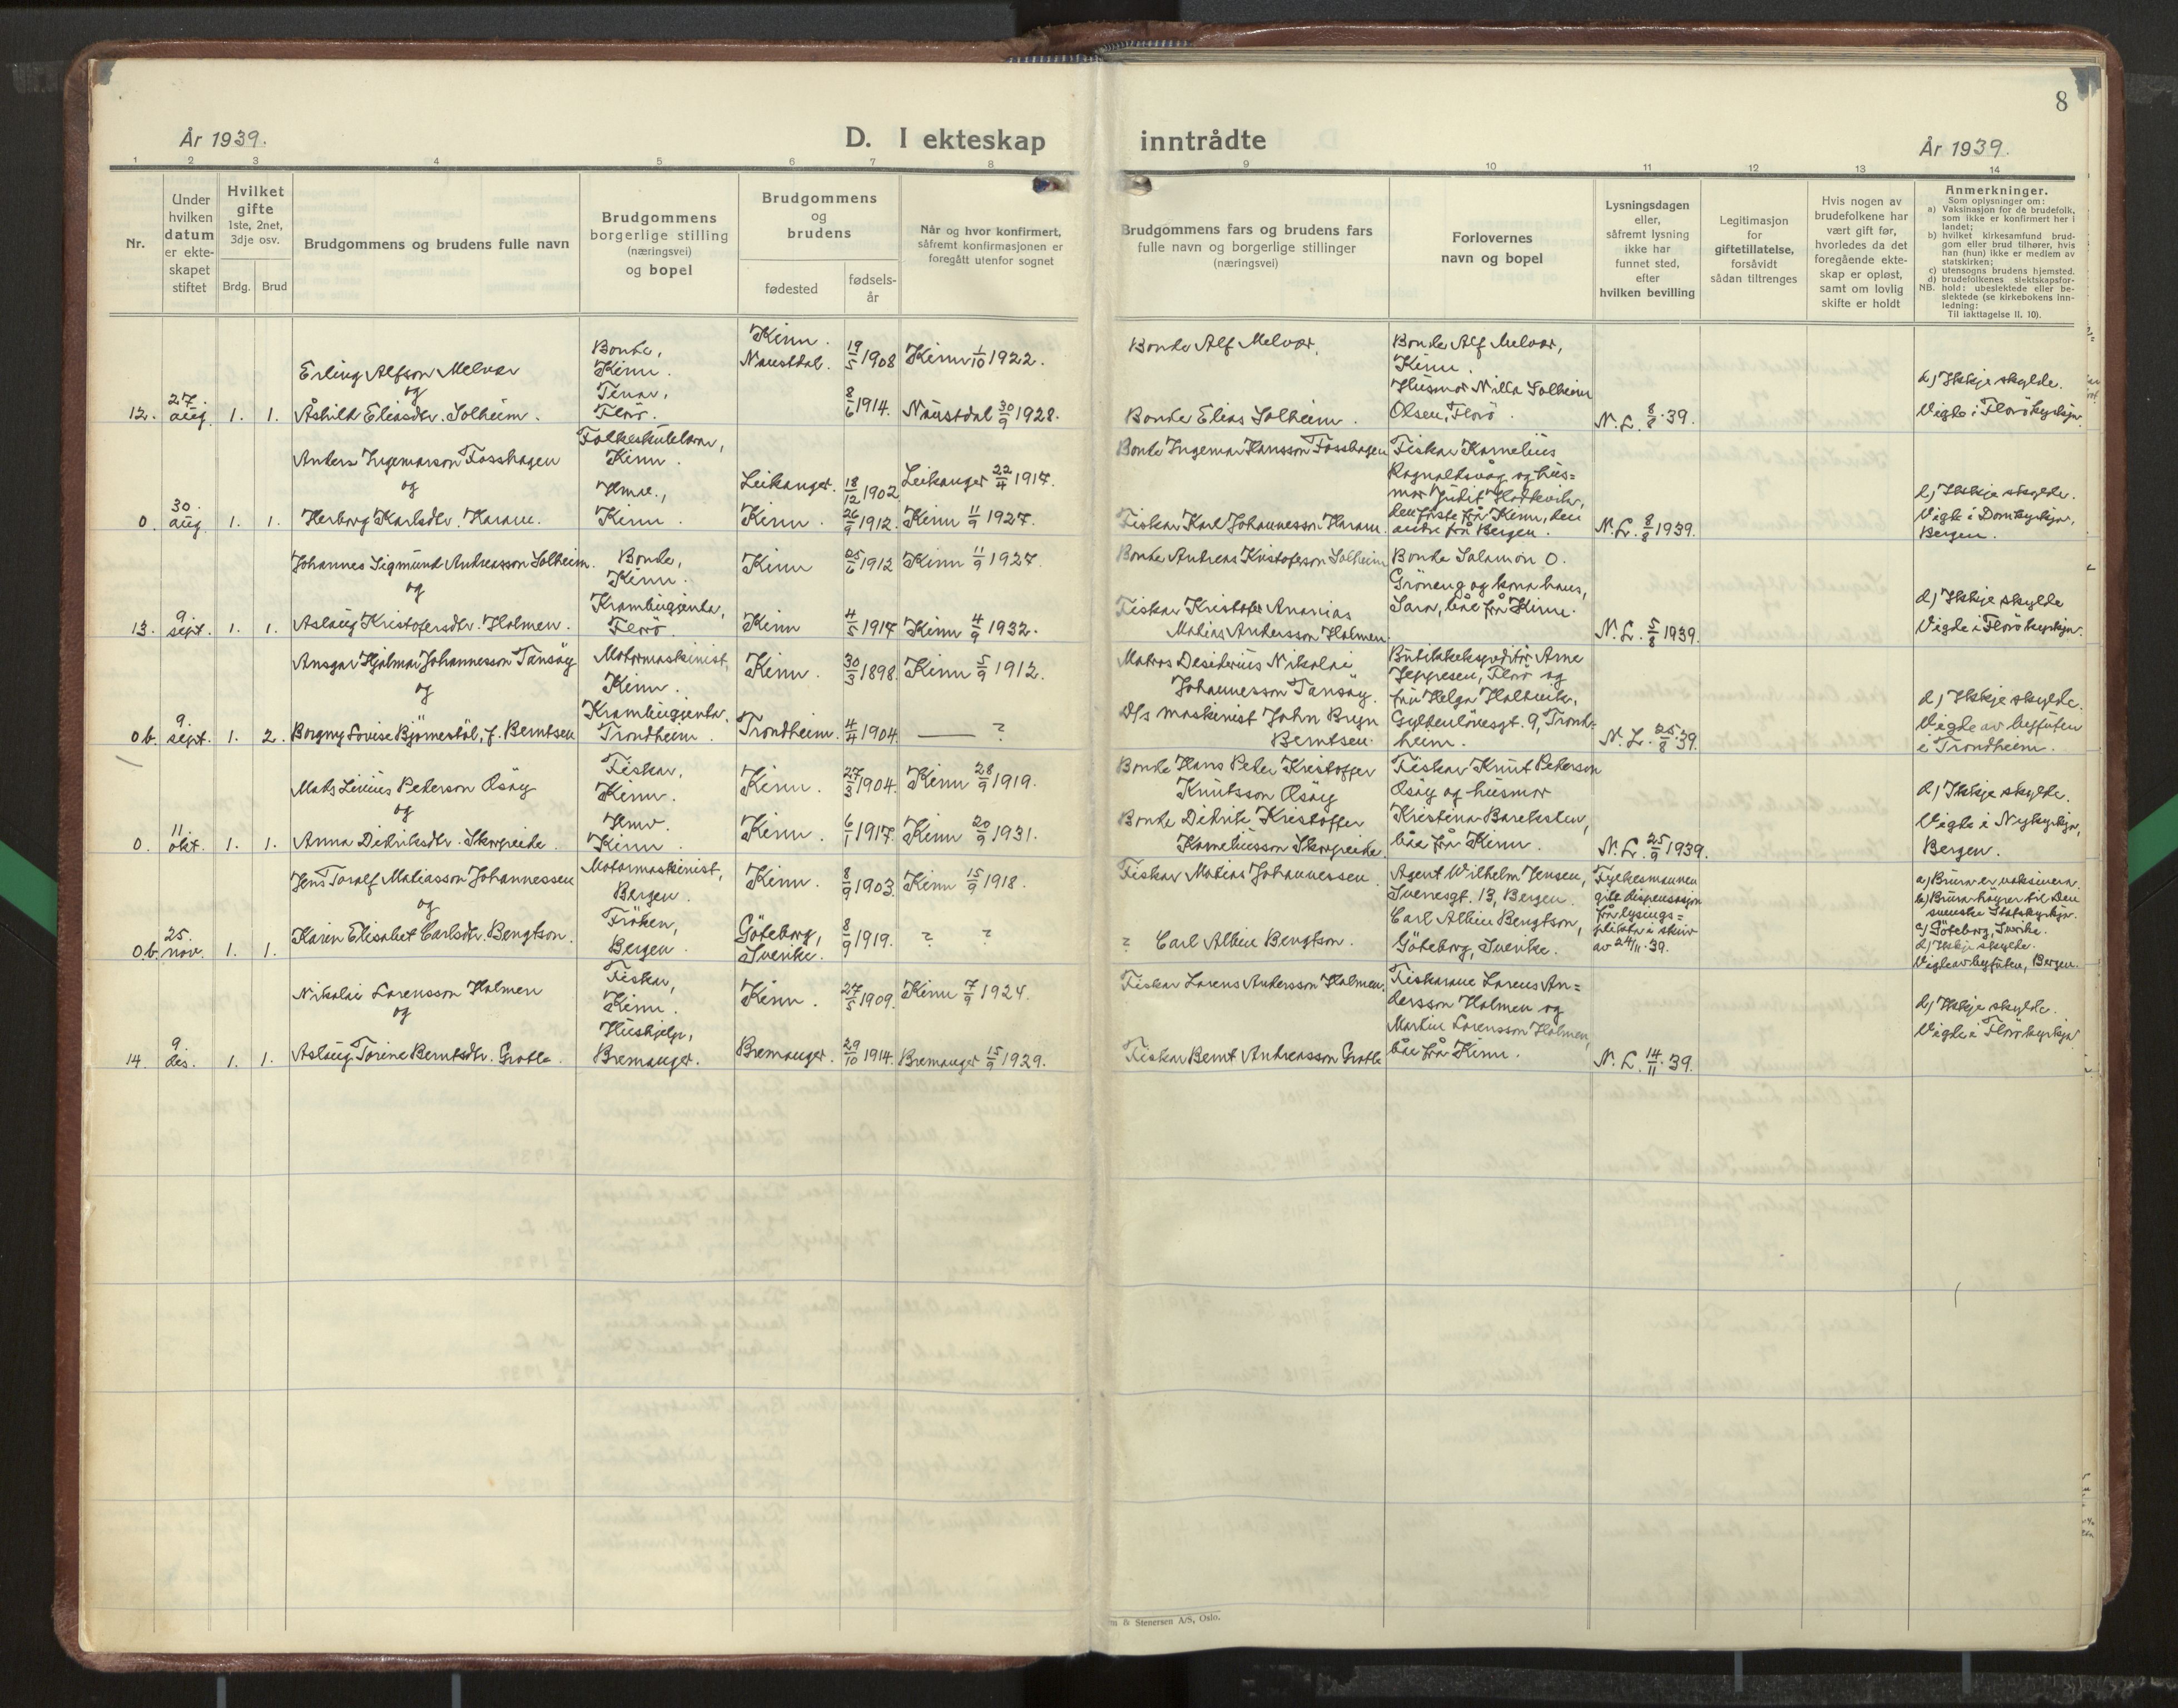 8
År 1939. D. I ekteskap inntrådte År 1939.
1 2 3 4 5 6 7 8 9 10 11 12 13 14
Nr.
Under
hvilken
datum
er ekte-
skapet
stiftet
Hvilket
gifte
1ste, 2net,
3dje osv.
Brdg. Brud
Brudgommens og brudens fulle navn
Brudgommens
borgerlige stilling
(næringsvei)
og bopel
Brudgommens
og
brudens
fødested
fødsels-
år
Når og hvor konfirmert,
såfremt konfirmasjonen er
foregått utenfor sognet
Brudgommens fars og brudens fars
fulle navn og borgerlige stillinger
(næringsvei)
Forlovernes
navn og bopel
Lysningsdagen
eller,
såfremt lysning
ikke har
funnet sted,
efter
hvilken bevilling
Legitimasjon
for
giftetillatelse,
forsåvidt
sådan tiltrenges
Hvis nogen av
brudefolkene har
vært gift før,
hvorledes da det
foregående ekte-
skap er opløst,
samt om lovlig
skifte er holdt
Anmerkninger.
Som oplysninger om:
a) Vaksinasjon for de brudefolk,
som ikke er konfirmert her i
landet;
b) hvilket kirkesamfund brud-
gom eller brud tilhører, hvis
han (hun) ikke er medlem av
statskirken;
c) utensogns brudens hjemsted.
d) brudefolkenes slektskapsfor-
NB. hold: ubeslektede eller be-
slektede (se kirkebokens inn-
ledning:
Til iakttagelse II. 10).
12. 27. aug. 1. 1.
Erling Alfson Melvær
og
Åshild Eliasdtr. Solheim.
Bonde,
Kinn.
Tenar,
Florø.
Kinn.
Naustdal.
19/5 1908
8/6 1914.
Kinn 1/10 1922.
Naustdal 30/9 1928.
Bonde Alf Melvær.
Bonde Elias Solheim.
Bonde Alf Melvær,
Kinn.
Husmor Milla Solheim
Olsen, Florø.
N. L. 8/8 39.
d) Ikkje skylde.
Vigde i Florø kyrkja.
0. 30. aug. 1. 1.
Anders Ingemarson Fosshagen
og
Herborg Karlsdtr. Haram.
Folkeskulelærar,
Kinn.
Hmv.,
Kinn.
Leikanger.
Kinn.
18/12 1902
26/9 1912.
Leikanger 22/4 1917.
Kinn 11/9 1927.
Bonde Ingemar Hansson Fosshagen
Fiskar Karl Johannesson Haram.
Fiskar Kornelius
Rognaldsvåg og hus=
mor Judit Hodnevik,
den første frå Kinn, den
andre frå Bergen.
N. L. 8/8 1939.
d) Ikkje skylde.
Vigde i Domkyrkja,
Bergen.
13. 9. sept. 1. 1.
Johannes Sigmund Andreasson Solheim.
og
Aslaug Kristofersdtr. Holmen.
Bonde,
Kinn.
Krambugjenta,
Florø.
Kinn
Kinn
25/6 1912
4/5 1917
Kinn 11/9 1927.
Kinn 4/9 1932.
Bonde Andreas Kristoferson Solheim
Fiskar Kristofer Ananias
Matias Andersson Holmen.
Bonde Salamon O.
Grøneng og kona hans,
Sara, båe frå Kinn.
N. L. 5/8 1939.
d) Ikkje skylde
Vigde i Florø kyrkja.
0b. 9. sept. 1. 2.
Ansgar Hjalmar Johannesson Tansøy
og
Borgny Lovise Bjørnestøl, f. Berntsen
Motormaskinist,
Kinn.
Krambugjenta.
Trondheim.
Kinn.
Trondheim.
30/3 1898.
4/4 1904.
Kinn 5/9 1912.
— ?
Matros Desiderius Nikolai
Johannesson Tansøy.
D/s maskinist John Bryn
Berntsen.
Butikkekspeditør Arne
Jeppesen, Florø og
fru Helga Halsvik,
Gyldenløvesgt. 9, Trond-
heim.
N. L. 25/8 39.
d) Ikkje skylde.
Vigde av byfuten
i Trondheim.
0. 11 okt. 1. 1.
Mats Linius Peterson Osøy
og
Anna Didriksdtr. Skorpeide.
Fiskar,
Kinn.
Hmv.
Kinn.
Kinn.
Kinn.
27/3 1904.
6/1 1917.
Kinn 28/9 1919.
Kinn 20/9 1931.
Bonde Hans Peter Kristoffer
Knutsson Osøy
Bonde Didrik Kristoffer
Korneliusson Skorpeide.
Fiskar Knut Peterson
Osøy og husmor
Kristina Bareksten,
båe frå Kinn.
N. L. 25/9 1939.
d) Ikkje skylde.
Vigde i Nykyrkja,
Bergen.
0b. 25. nov. 1. 1.
Jens Toralf Matiasson Johannessen
og
Karin Elisabet Carlsdtr. Bengtson.
Motormaskinist,
Bergen.
Frøken,
Bergen.
Kinn.
Göteborg,
Sverike.
8/9 1903.
8/9 1919.
Kinn 15/9 1918.
? ?
Fiskar Matias Johannessen.
? Carl Albin Bengtson.
Agent Wilhelm Jensen,
Sveresgt. 13, Bergen.
Carl Albin Bengtson,
Göteborg, Sverike.
Fylkesmannen
gitt dispensasjon
frå lysings=
plikta i skriv
av 24/11 39.
a) Brura er vaksinera.
b) Brura høyrer til Den
svenske Statskyrkja.
c) Göteborg, Sverike.
d) Ikkje skylde.
Vigde av byfuten, Bergen.
14. 9. des. 1. 1.
Nikolai Lorensson Holmen
og
Aslaug Torine Berntsdtr. Grotle.
Fiskar,
Kinn.
Hushjelp,
Bremanger.
Kinn.
Bremanger.
27/5 1909.
29/10 1914.
Kinn 7/9 1924.
Bremanger 15/9 1929.
Fiskar Lorens Andersson Holmen.
Fiskar Bernt Andreasson Grotle
Fiskarane Lorens An=
dersson Holmen og
Martin Lorensson Holmen,
båe frå Kinn.
N. L. 14/11 39.
d) Ikkje skylde.
Vigde i Florø kyrkja
& Stenersen A/S, Oslo.